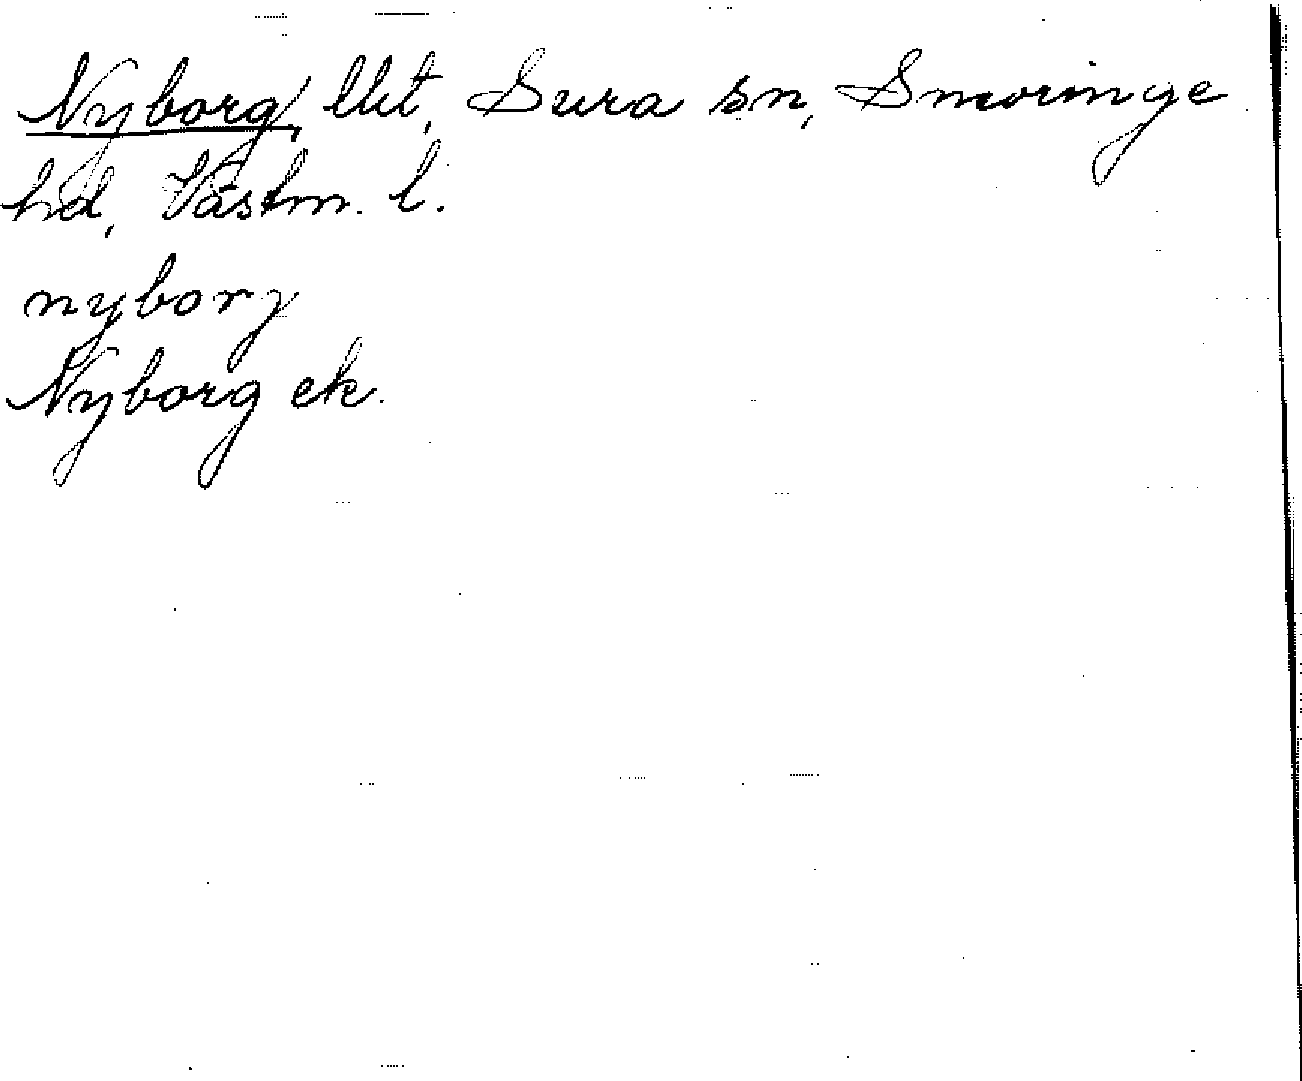 Nyborg, lht, Sura sn, Snevringe
hd, Västm. l.
nyborg
Nyborg ek.